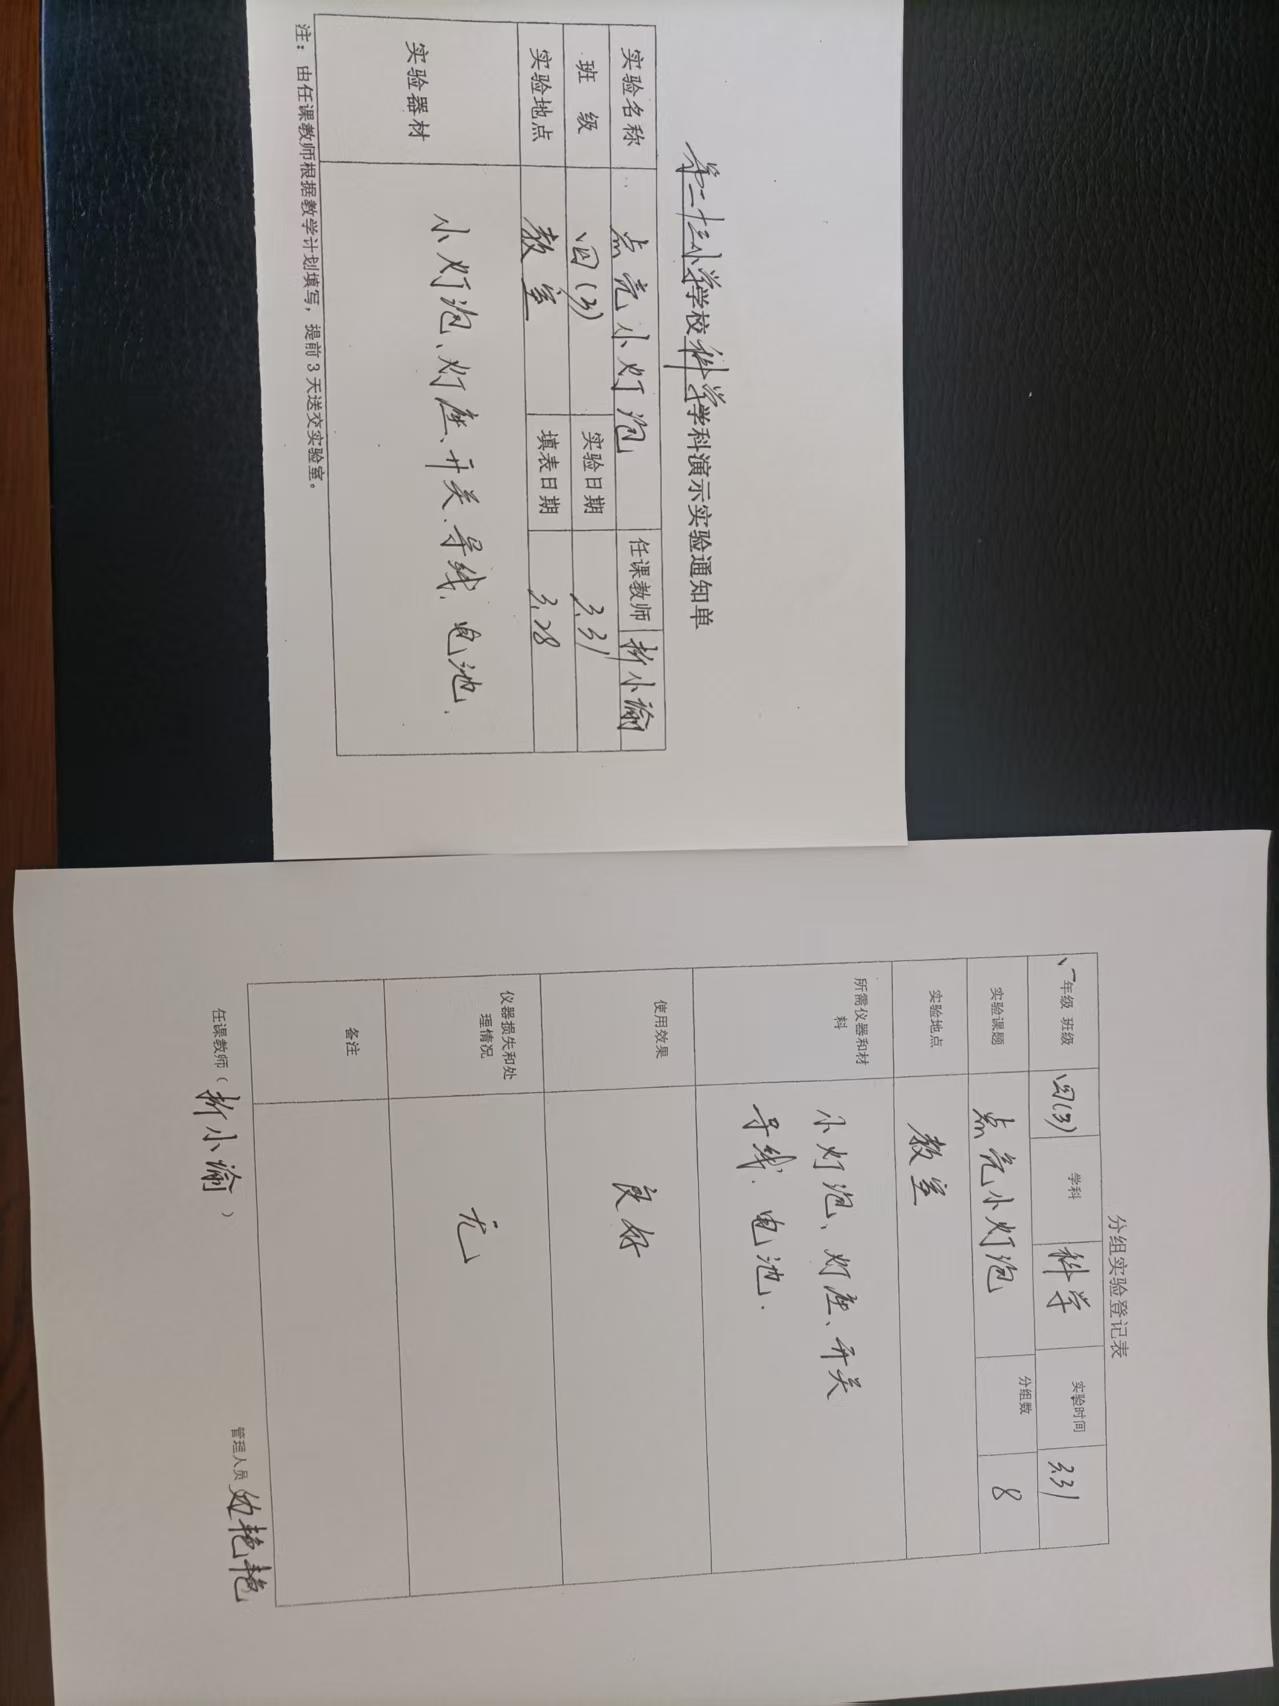 第二十三小学学校科学学科演示实验通知单
实验名称 点亮小灯泡 任课教师 折小谕
班 级 四(3) 实验日期 3.31
实验地点 教室 填表日期 3.28
实验器材 小灯泡、灯座、开关、导线、电池.
注：由任课教师根据教学计划填写，提前3天送交实验室。
分组实验登记表
年级 班级 四(3) 学科 科学 实验时间 3.31
实验课题 点亮小灯泡 分组数 8
实验地点 教室
所需仪器和材
料
小灯泡、灯座、开关
导线、电池.
使用效果 良好
仪器损失和处
理情况
无
备注
任课教师（折小谕） 管理人员 边艳艳